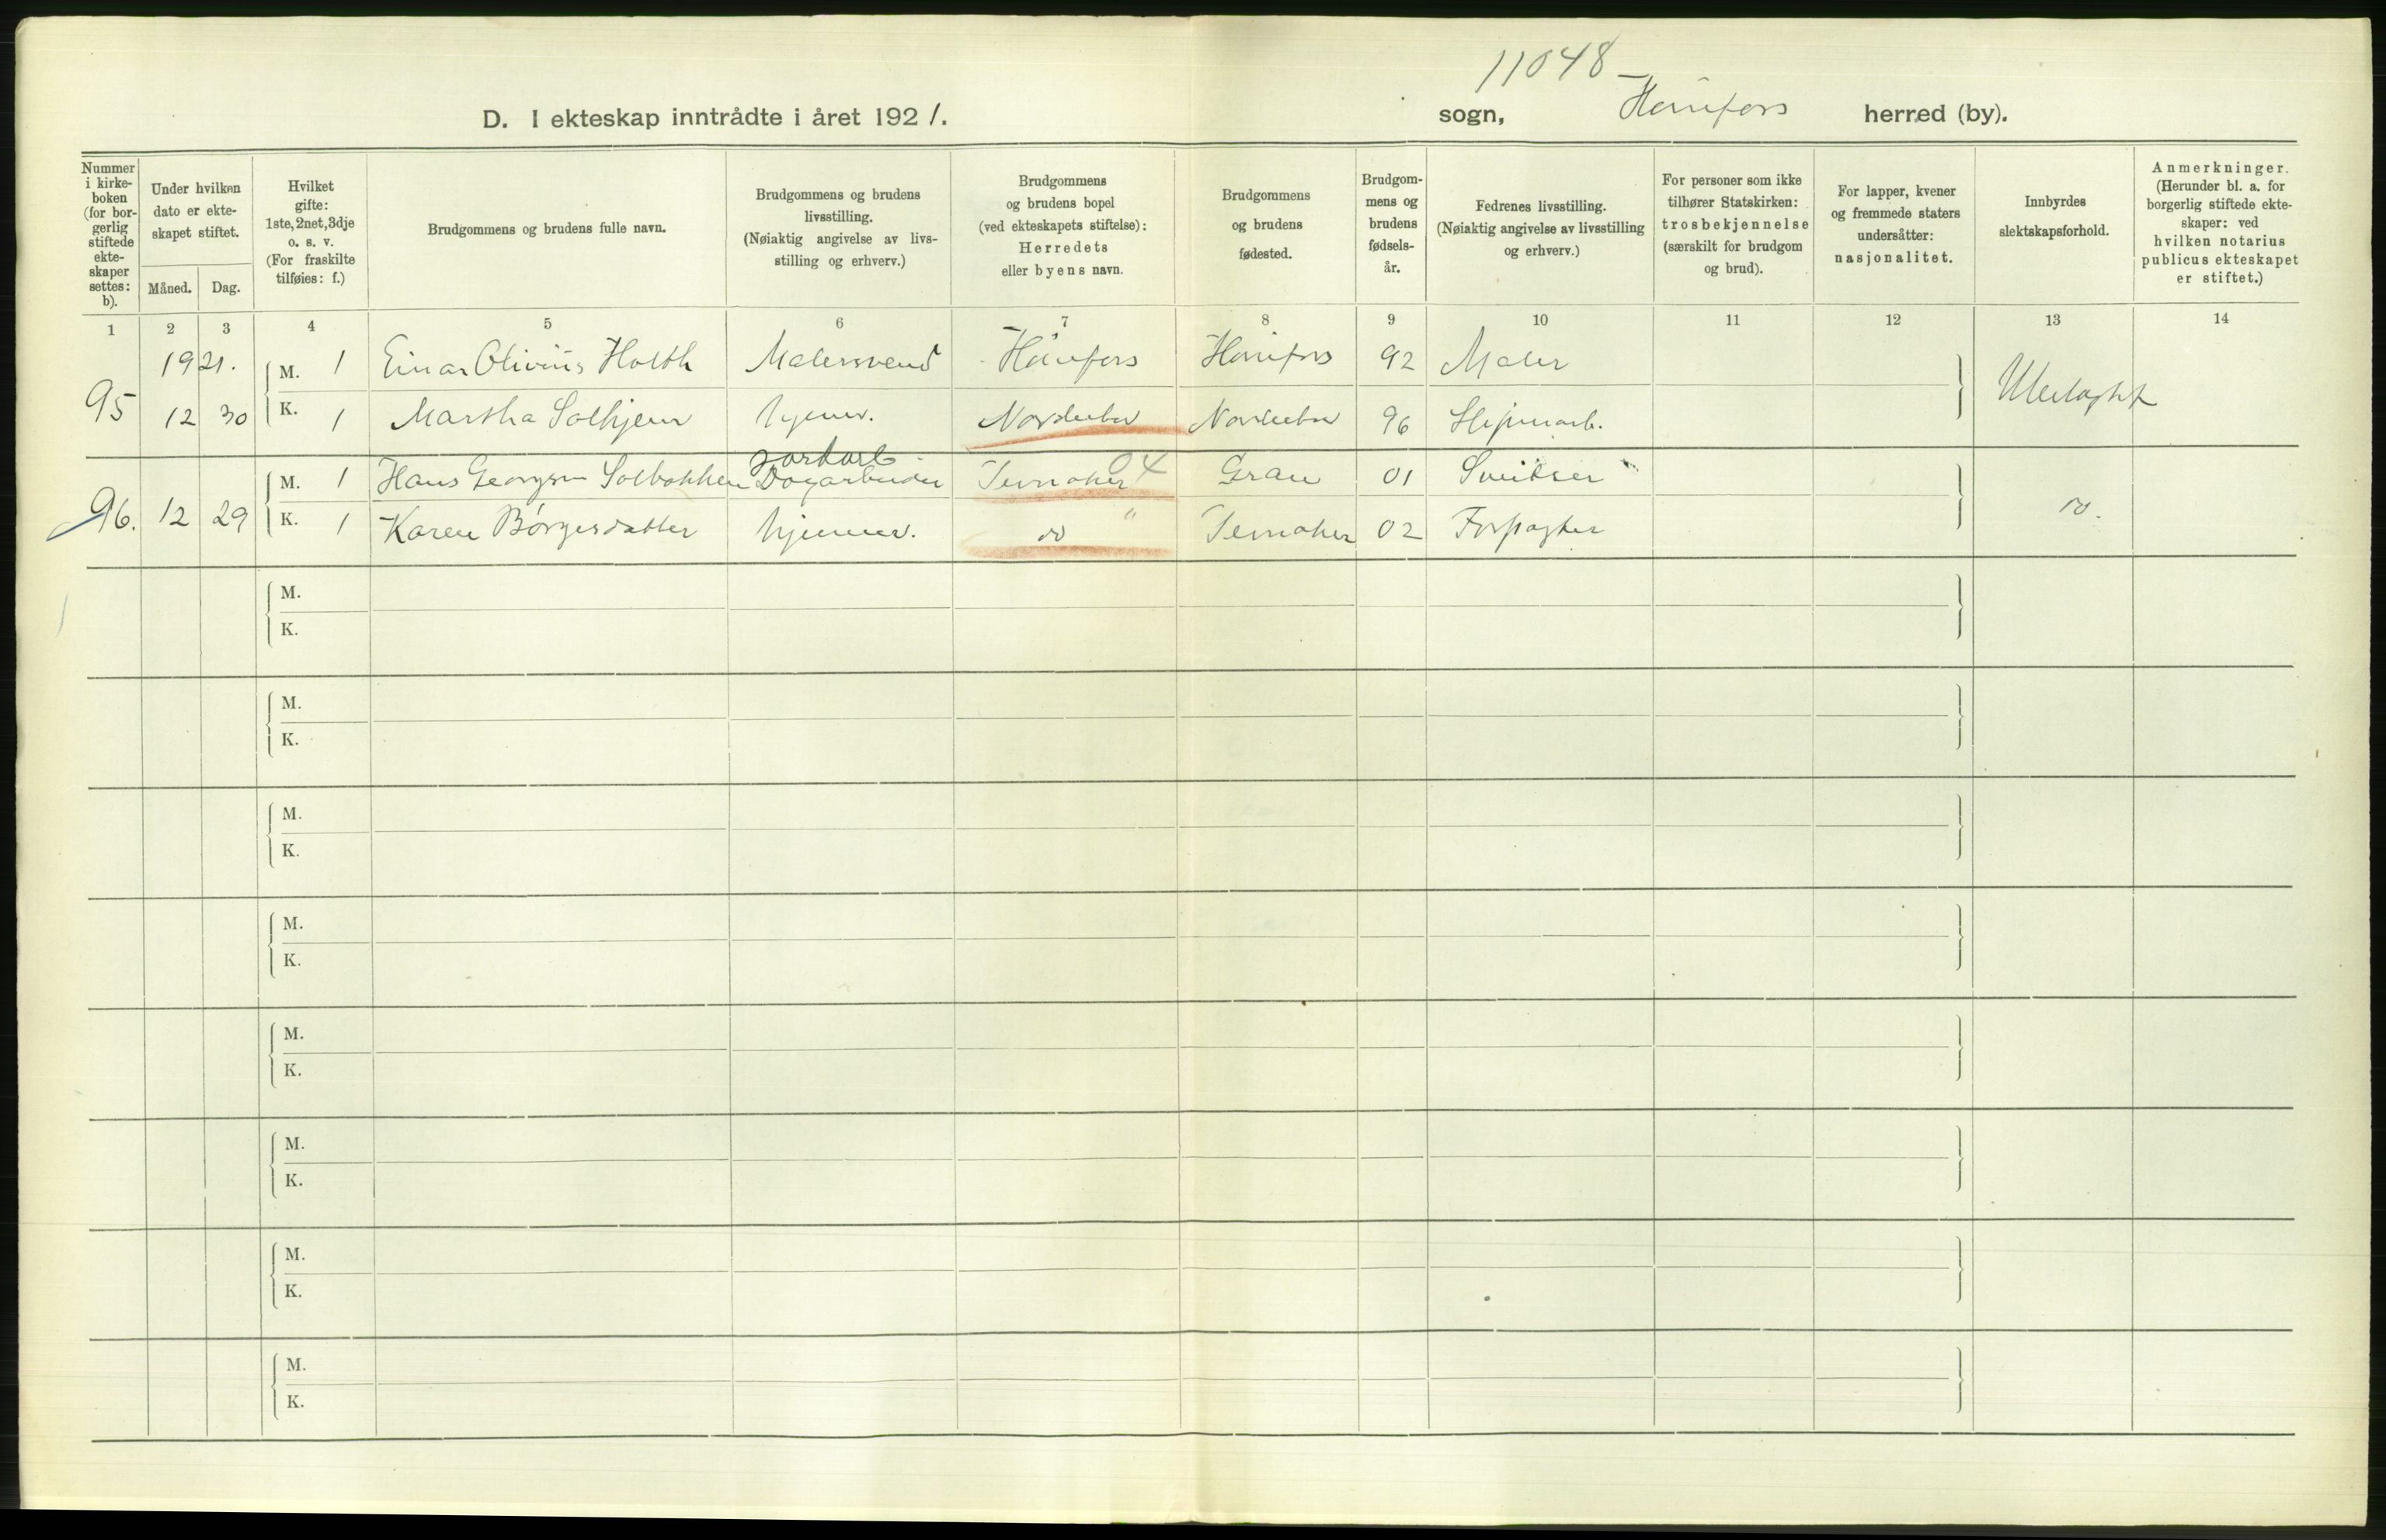 11048
D. I ekteskap inntrådte i året 1921.
sogn, Hønefoss herred (by).
Nummer i kirke-boken (for bor-gerlig stiftede ekte-skaper settes: b).
Under hvilken dato er ekte-skapet stiftet.
Måned. Dag.
Hvilket gifte: 1ste, 2net, 3dje o. s. v. (For fraskilte tilføies: f.)
Brudgommens og brudens fulle navn.
Brudgommens og brudens livsstilling. (Nøiaktig angivelse av livs-stilling og erhverv.)
Brudgommens og brudens bopel (ved ekteskapets stiftelse): Herredets eller byens navn.
Brudgommens og brudens fødested.
Brudgom-mens og brudens fødsels-år.
Fedrenes livsstilling. (Nøiaktig angivelse av livsstilling og erhverv.)
For personer som ikke tilhører Statskirken: trosbekjennelse (særskilt for brudgom og brud).
For lapper, kvener og fremmede staters undersåtter: nasjonalitet.
Innbyrdes slektskapsforhold.
Anmerkninger. (Herunder bl. a. for borgerlig stiftede ekte-skaper: ved hvilken notarius publicus ekteskapet er stiftet.)
1 2 3 4 5 6 7 8 9 10 11 12 13 14
1921. M. 1 Einar Olivius Holth Malersvend Hønefoss Hønefoss 92 Maler
95 12 30 K. 1 Martha Solhjem hjemv. Norderhov Norderhov 96 Slipearb. Ubeslægtet
jordarb 04
M. 1 Hans Georgsen Solbakken Dagarbeider Jevnaker Gran 01 Sveitser
96. 12 29 K. 1 Karen Børgesdatter hjemmev. do " Jevnaker 02 Forpagter do.
M.
K.
M.
K.
M.
K.
M.
K.
M.
K.
M.
K.
M.
K.
M.
K.